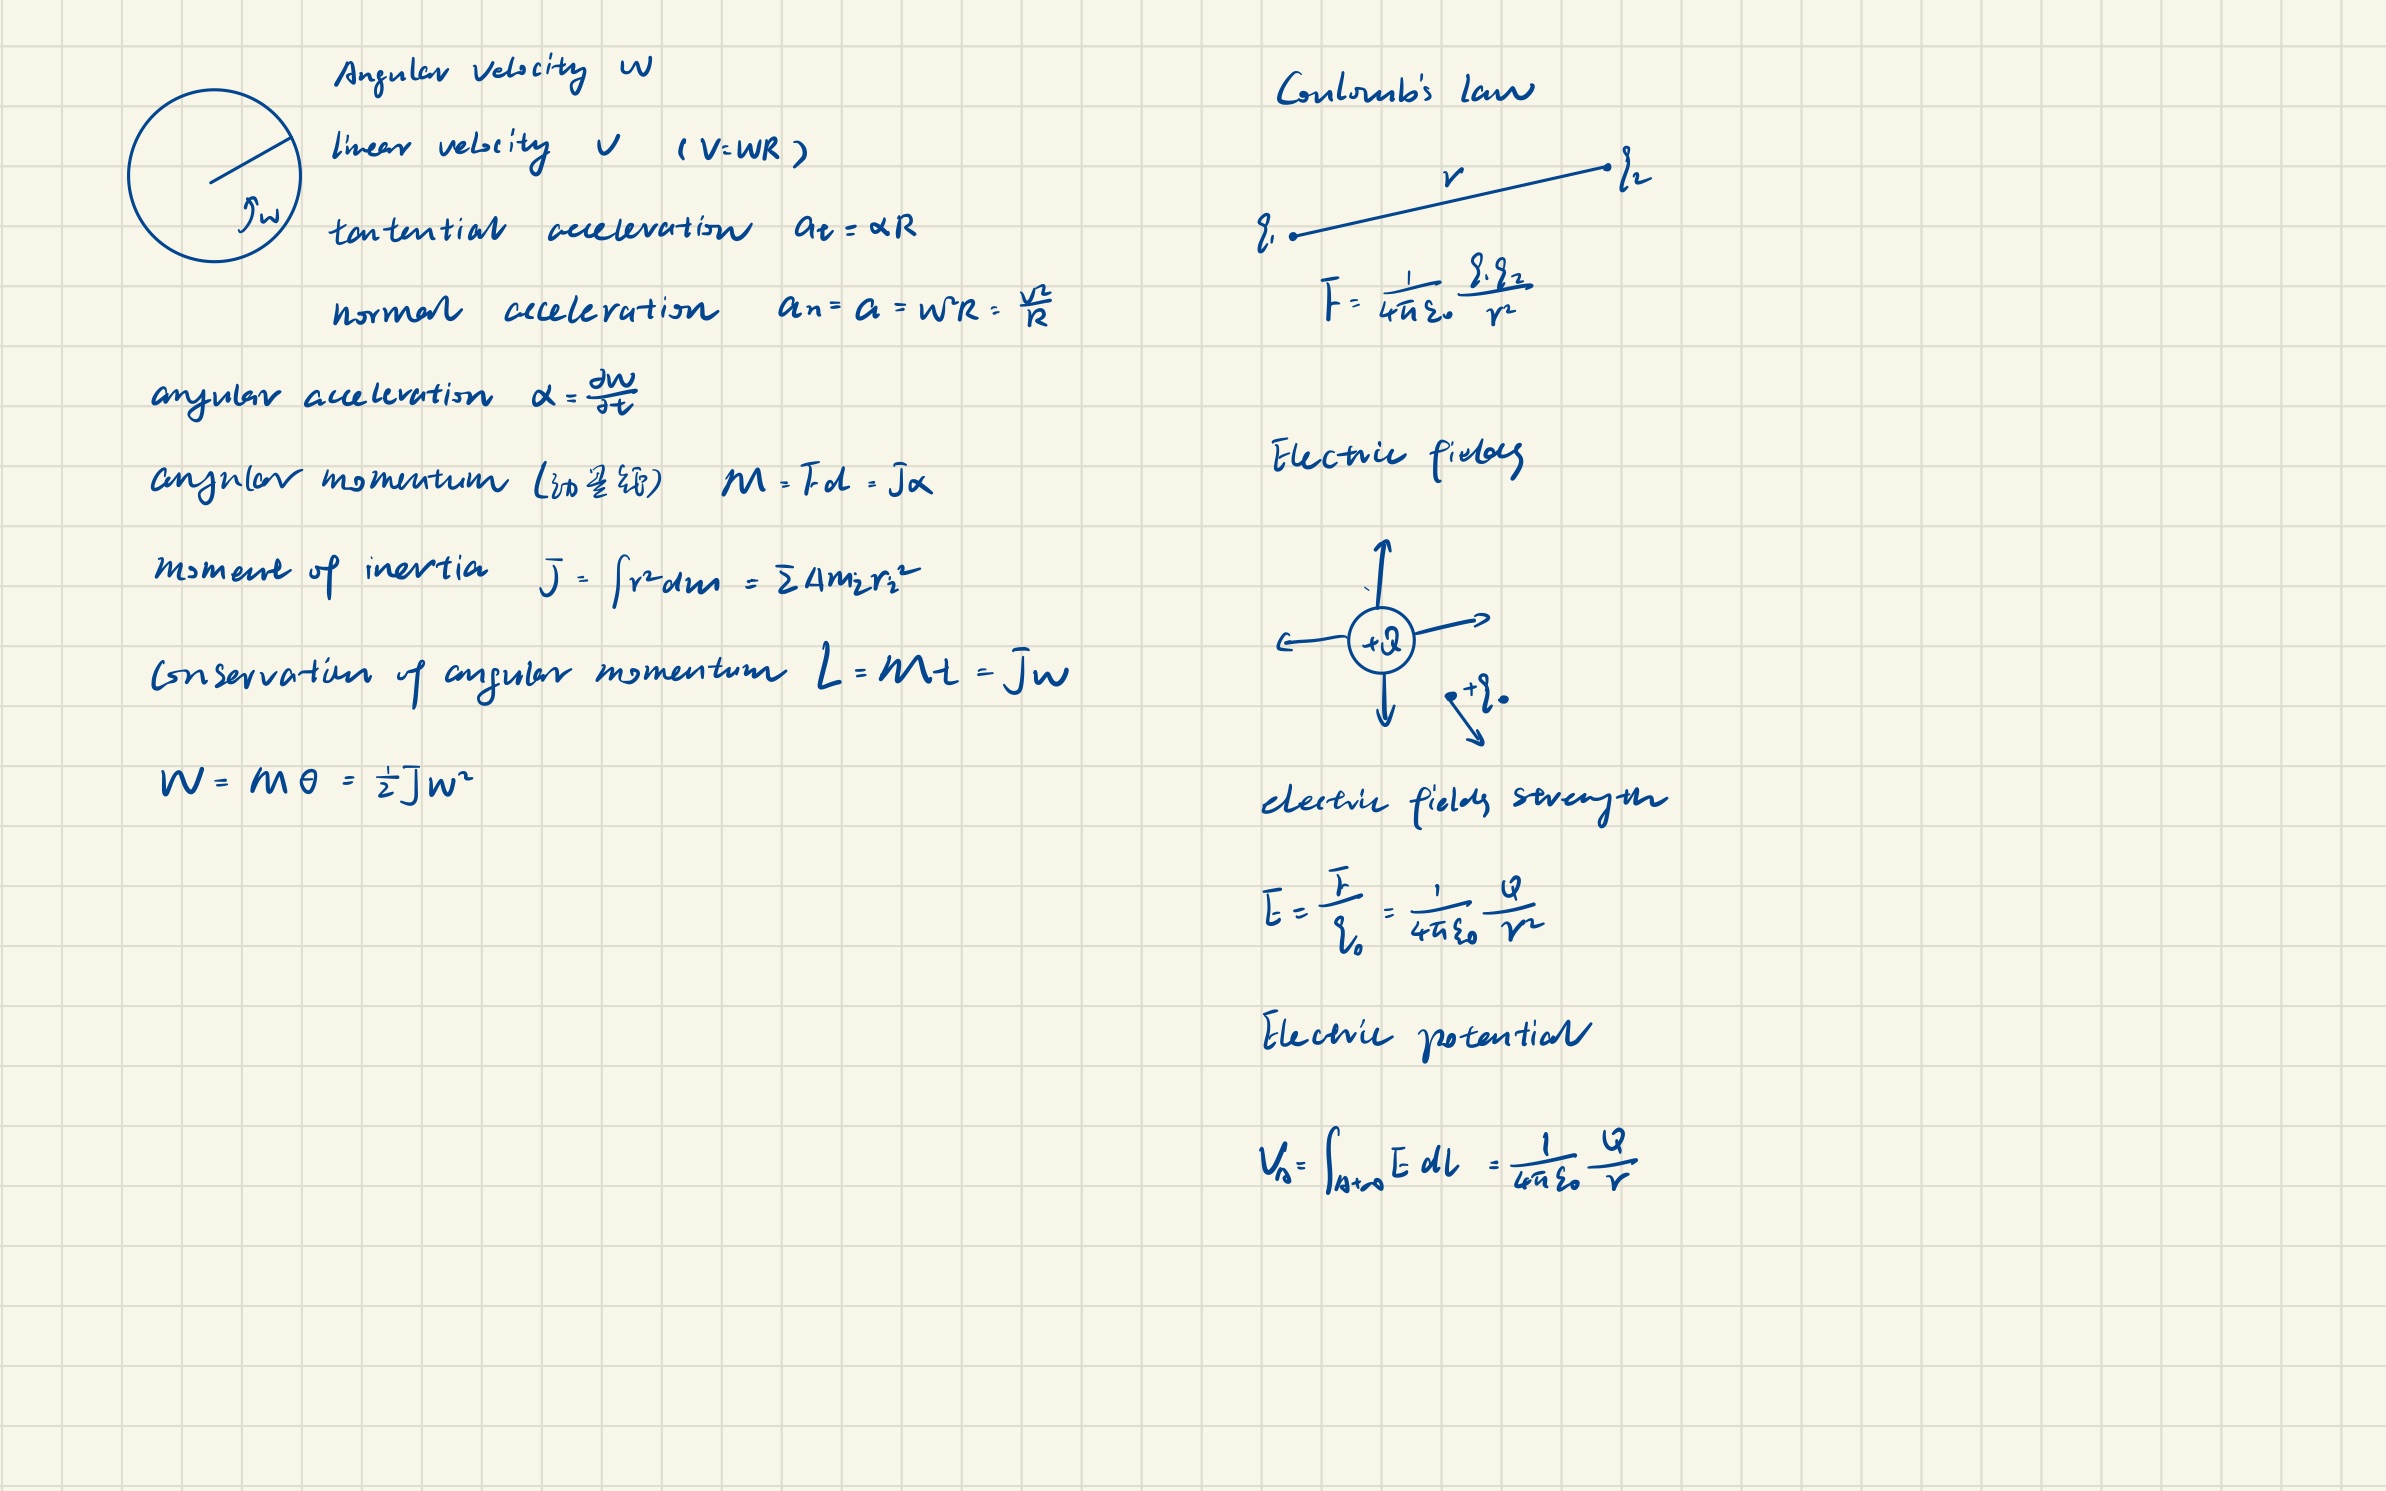 Angular velocity w
linear velocity v (V=WR)
w
tantential acceleration at = αR
normal acceleration an = a = w²R = v²/R
angular acceleration α = ∂w/∂t
angular momentum (动量矩) M = Fd = Jα
moment of inertia J = ∫r²dm = ΣΔmiri²
Conservation of angular momentum L = Mt = Jw
W = Mθ = ½Jw²
Coulomb's law
r q2
q1
F = 1/4πε0 q1q2/r²
Electric fields
+Q
+q0
electric fields strength
E = F/q0 = 1/4πε0 Q/r²
Electric potential
VA = ∫A+∞ E dl = 1/4πε0 Q/r